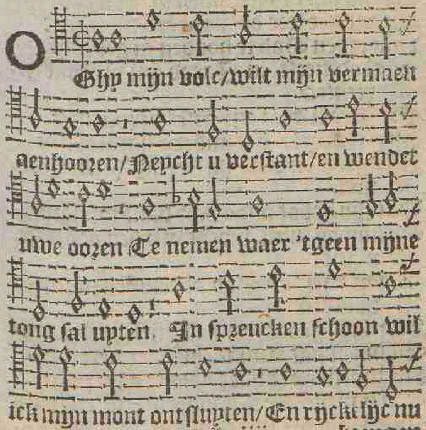 O
Ghy mijn volc/wilt mijn vermaen
aenhooren/Neycht u verstant/en wendet
uwe ooren Te nemen waer 'tgeen mijne
tong sal uyten. In spreucken schoon wil
ick mijn mont ontsluyten/En ryckelijc nu